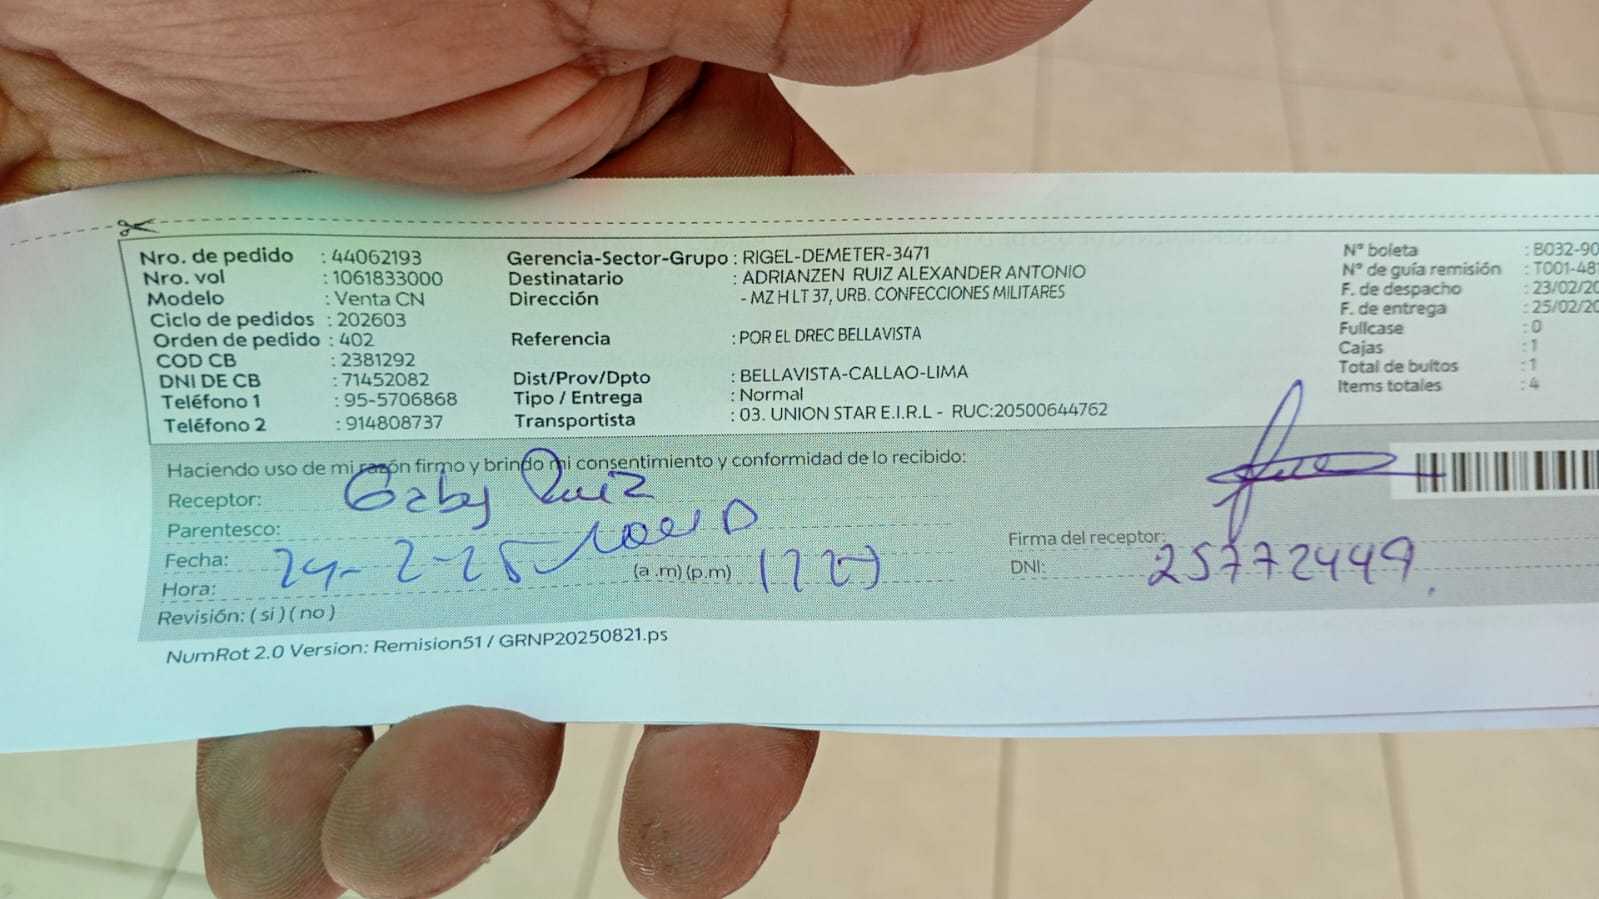 Nro. de pedido : 44062193
Nro. vol : 1061833000
Modelo : Venta CN
Ciclo de pedidos : 202603
Orden de pedido : 402
COD CB : 2381292
DNI DE CB : 71452082
Teléfono 1 : 95-5706868
Teléfono 2 : 914808737
Gerencia-Sector-Grupo : RIGEL-DEMETER-3471
Destinatario : ADRIANZEN RUIZ ALEXANDER ANTONIO
Dirección - MZ H LT 37, URB. CONFECCIONES MILITARES
Referencia : POR EL DREC BELLAVISTA
Dist/Prov/Dpto : BELLAVISTA-CALLAO-LIMA
Tipo / Entrega : Normal
Transportista : 03. UNION STAR E.I.R.L - RUC:20500644762
N° boleta : B032-90
N° de guía remisión : T001-481
F. de despacho : 23/02/20
F. de entrega : 25/02/20
Fullcase : 0
Cajas : 1
Total de bultos : 1
Items totales : 4
Haciendo uso de mi razón firmo y brindo mi consentimiento y conformidad de lo recibido:
Receptor: Gaby Ruiz
Parentesco:
Fecha: 24-2-25
Hora: (a.m) (p.m)
Revisión: ( si ) ( no )
Firma del receptor:
DNI: 25772449.
NumRot 2.0 Version: Remision51 / GRNP20250821.ps